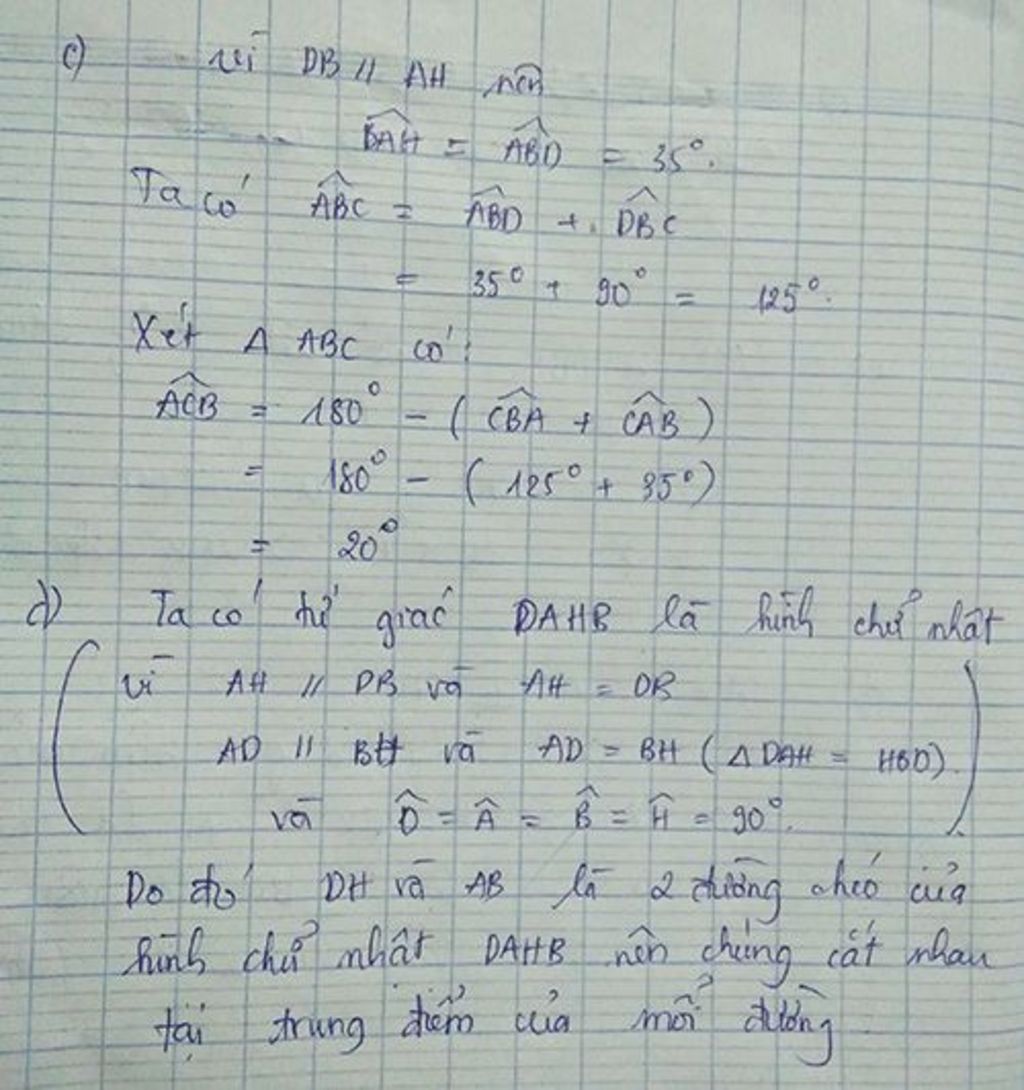 c) Vì DB // AH nên
$\widehat{BAH} = \widehat{ABD} = 35°.$
Ta có $\widehat{ABC} = \widehat{ABD} + \widehat{DBC}$
= 35° + 90° = 125°.
Xét Δ ABC có:
$\widehat{ACB} = 180° - (\widehat{CBA} + \widehat{CAB})$
= 180° - (125° + 35°)
= 20°
d) Ta có tứ giác DAHB là hình chữ nhật
(vì AH // DB và AH = DB
AD // BH và AD = BH (Δ DAH = HBD)
và $\widehat{D} = \widehat{A} = \widehat{B} = \widehat{H} = 90°.$)
Do đó DH và AB là 2 đường chéo của
hình chữ nhật DAHB nên chúng cắt nhau
tại trung điểm của mỗi đường